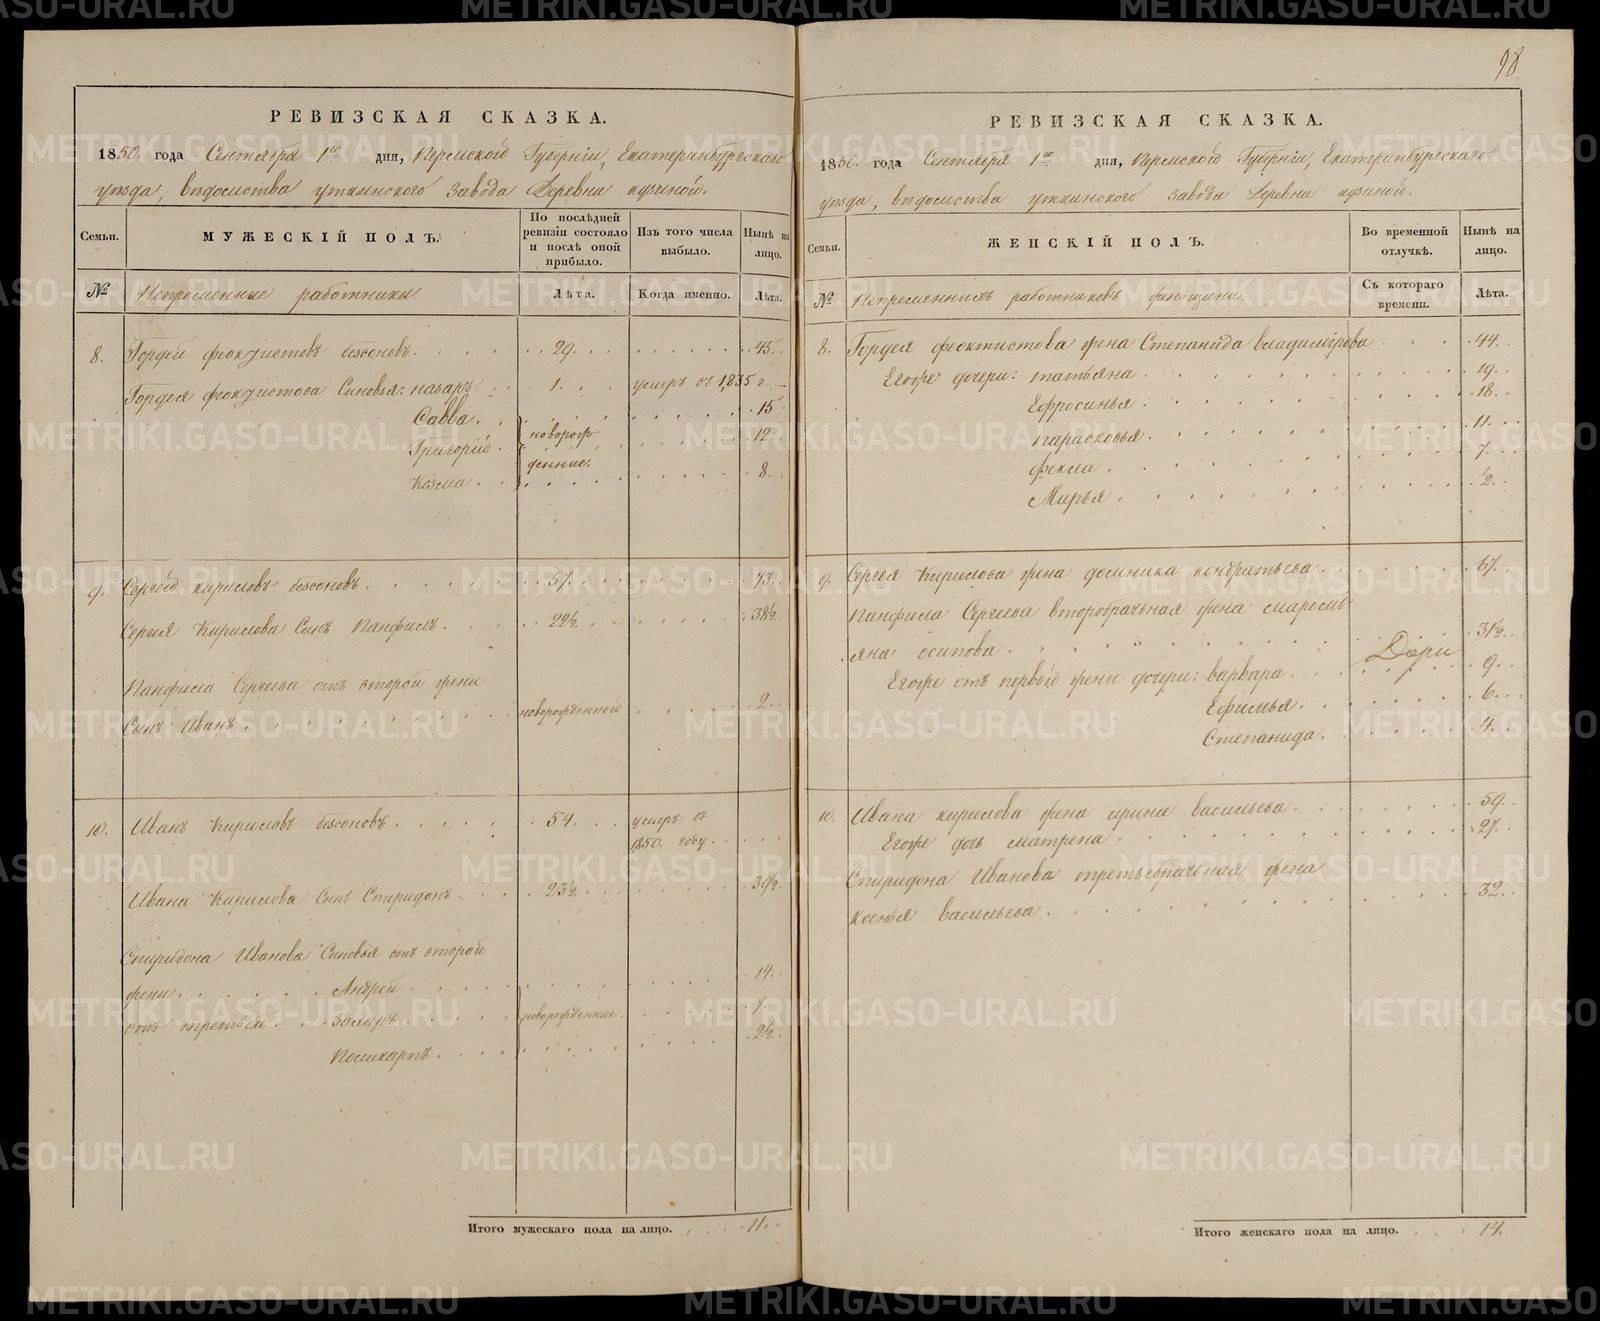 98
РЕВИЗСКАЯ СКАЗКА.
1850. года Сентября 1го дня, Пермской Губерніи, Екатеринбургскаго
уѣзда, вѣдомства уткинскаго завода Деревни кузиной.
Семьи.
МУЖЕСКІЙ ПОЛЪ.
По послѣдней ревизіи состояло и послѣ оной прибыло.
Изъ того числа выбыло.
Нынѣ на лицо.
№
Непременные работники.
Лѣта.
Когда именно.
Лѣта.
8. Гордей феоктистовъ безсоновъ. 29. 45.
Гордея феоктистова Сыновья: назаръ. 1. умеръ въ 1835 г.
Савва. 15
Григорій. новорож 12.
Козма. денные. 8.
9. Сергей кириловъ безсоновъ. 57. 73.
Сергея Кирилова Сынъ Панфилъ. 22½. 38½.
Панфила Сергеева отъ второй жены
Сынъ Иванъ. новорожденной 2.
10. Иванъ Кириловъ безсоновъ. 54. умеръ въ
1850. году.
Ивана Кирилова Сынъ Спиридонъ. 23½. 39½.
Спиридона Иванова Сыновья отъ второй
жены. Андрей. 14.
отъ третьей. Захаръ. новорожденные. 7.
Поликарпъ. 2½.
Итого мужескаго пола на лицо. 11.
РЕВИЗСКАЯ СКАЗКА.
1850. года Сентября 1го дня, Пермской Губерніи, Екатеринбургскаго
уѣзда, вѣдомства уткинскаго завода Деревни кузиной.
Семьи.
ЖЕНСКІЙ ПОЛЪ.
Во временной отлучкѣ.
Нынѣ на лицо.
№
Непременныхъ работниковъ женщины.
Съ котораго времени.
Лѣта.
8. Гордея феоктистова жена Степанида владимірова 44.
Егоже дочери: татьяна. 19.
Ефросинья. 18.
парасковья. 11.
фекла. 7.
Марья. ½.
9. Сергея Кирилова жена домника кондратьева. 67.
Панфила Сергеева второбрачная жена смареміь
яна осипова. 31½.
Егоже отъ первой жены дочери: варвара. 9.
Ефимья. 6.
Степанида. 4.
10. Ивана кирилова жена ирина васильева. 59.
Егоже дочь матрена. 27.
Спиридона Иванова третьебрачная жена
ксенья васильева. 32.
Итого женскаго пола на лицо. 14.